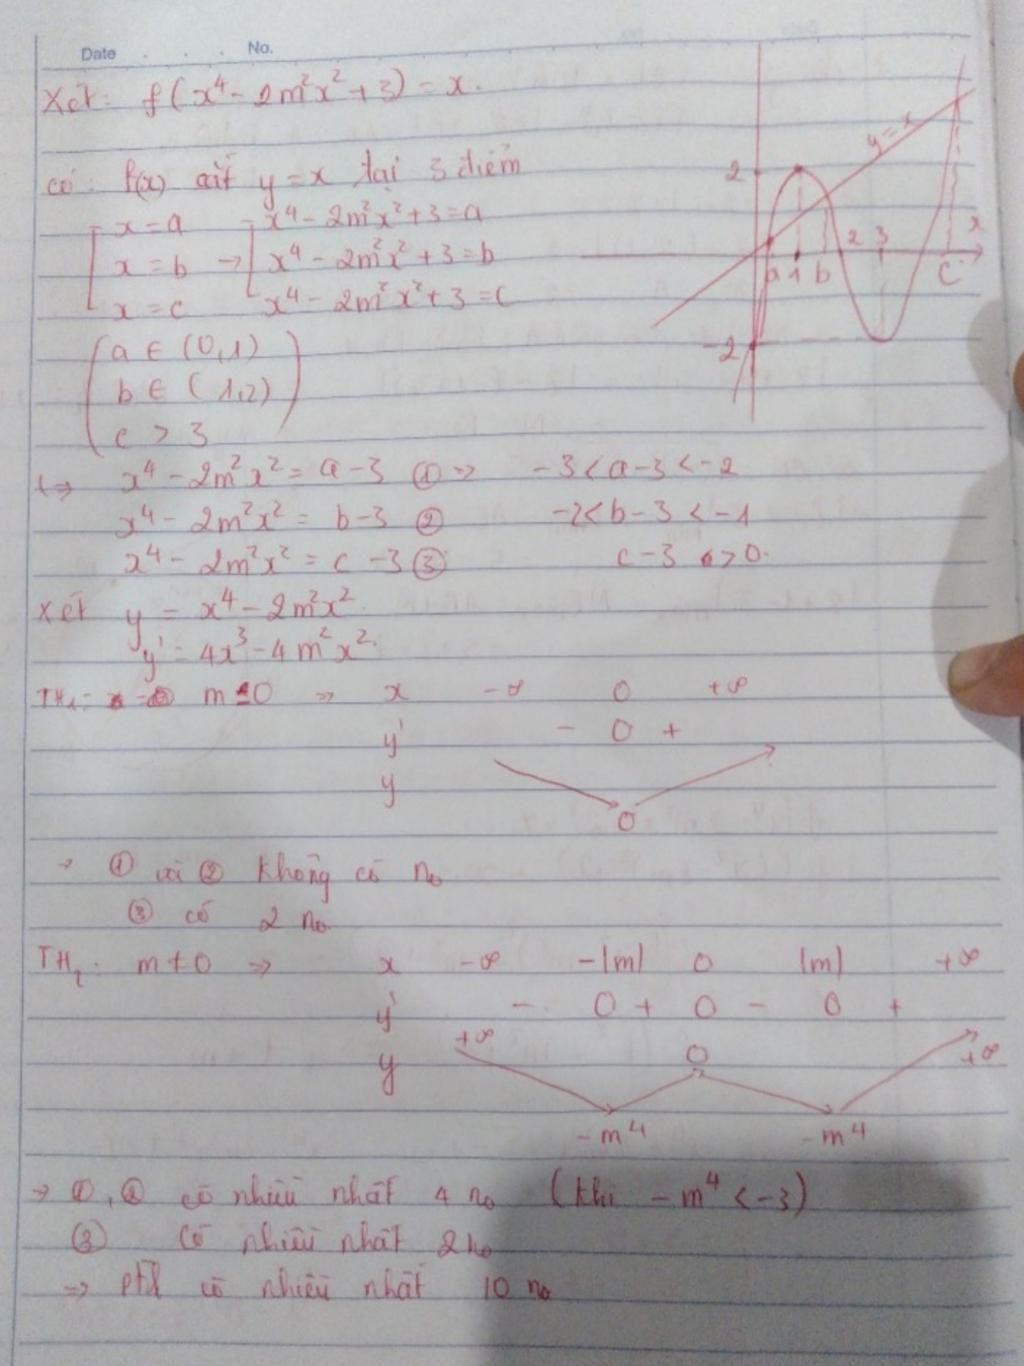 Date . . . No.
Xét: f(x⁴ - 2m²x² + 3) = x.
có: f(x) cắt y = x tại 3 điểm
x = a x⁴ - 2m²x² + 3 = a
x = b → x⁴ - 2m²x² + 3 = b
x = c x⁴ - 2m²x² + 3 = c
a ∈ (0,1)
b ∈ (1,2)
c > 3
y = x
2
a 1 b 2 3 c x
-2
↔ x⁴ - 2m²x² = a - 3 ① => -3 < a - 3 < -2
x⁴ - 2m²x² = b - 3 ② -2 < b - 3 < -1
x⁴ - 2m²x² = c - 3 ③ c - 3 > 0.
Xét y = x⁴ - 2m²x²
y' = 4x³ - 4m²x².
TH₁: m = 0 => x -∞ 0 +∞
y' - 0 +
y
0
→ ① và ② không có no
③ có 2 no.
TH₂: m ≠ 0 => x -∞ -|m| 0 |m| +∞
y' - 0 + 0 - 0 +
y +∞ 0 +∞
-m⁴ -m⁴
→ ①, ② có nhiều nhất 4 no (khi -m⁴ < -3)
③ có nhiều nhất 2 no
=> ptr có nhiều nhất 10 no